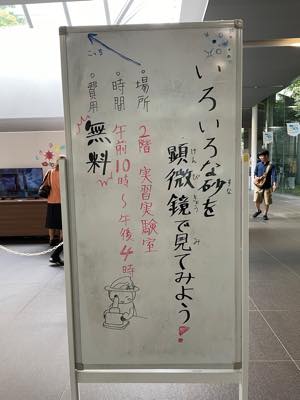 いろいろな砂を
すな
顕微鏡で見てみよう!
けんびきょう み
・場所 2階 実習実験室
・時間 午前10時〜午後4時
・費用 無料
こっち